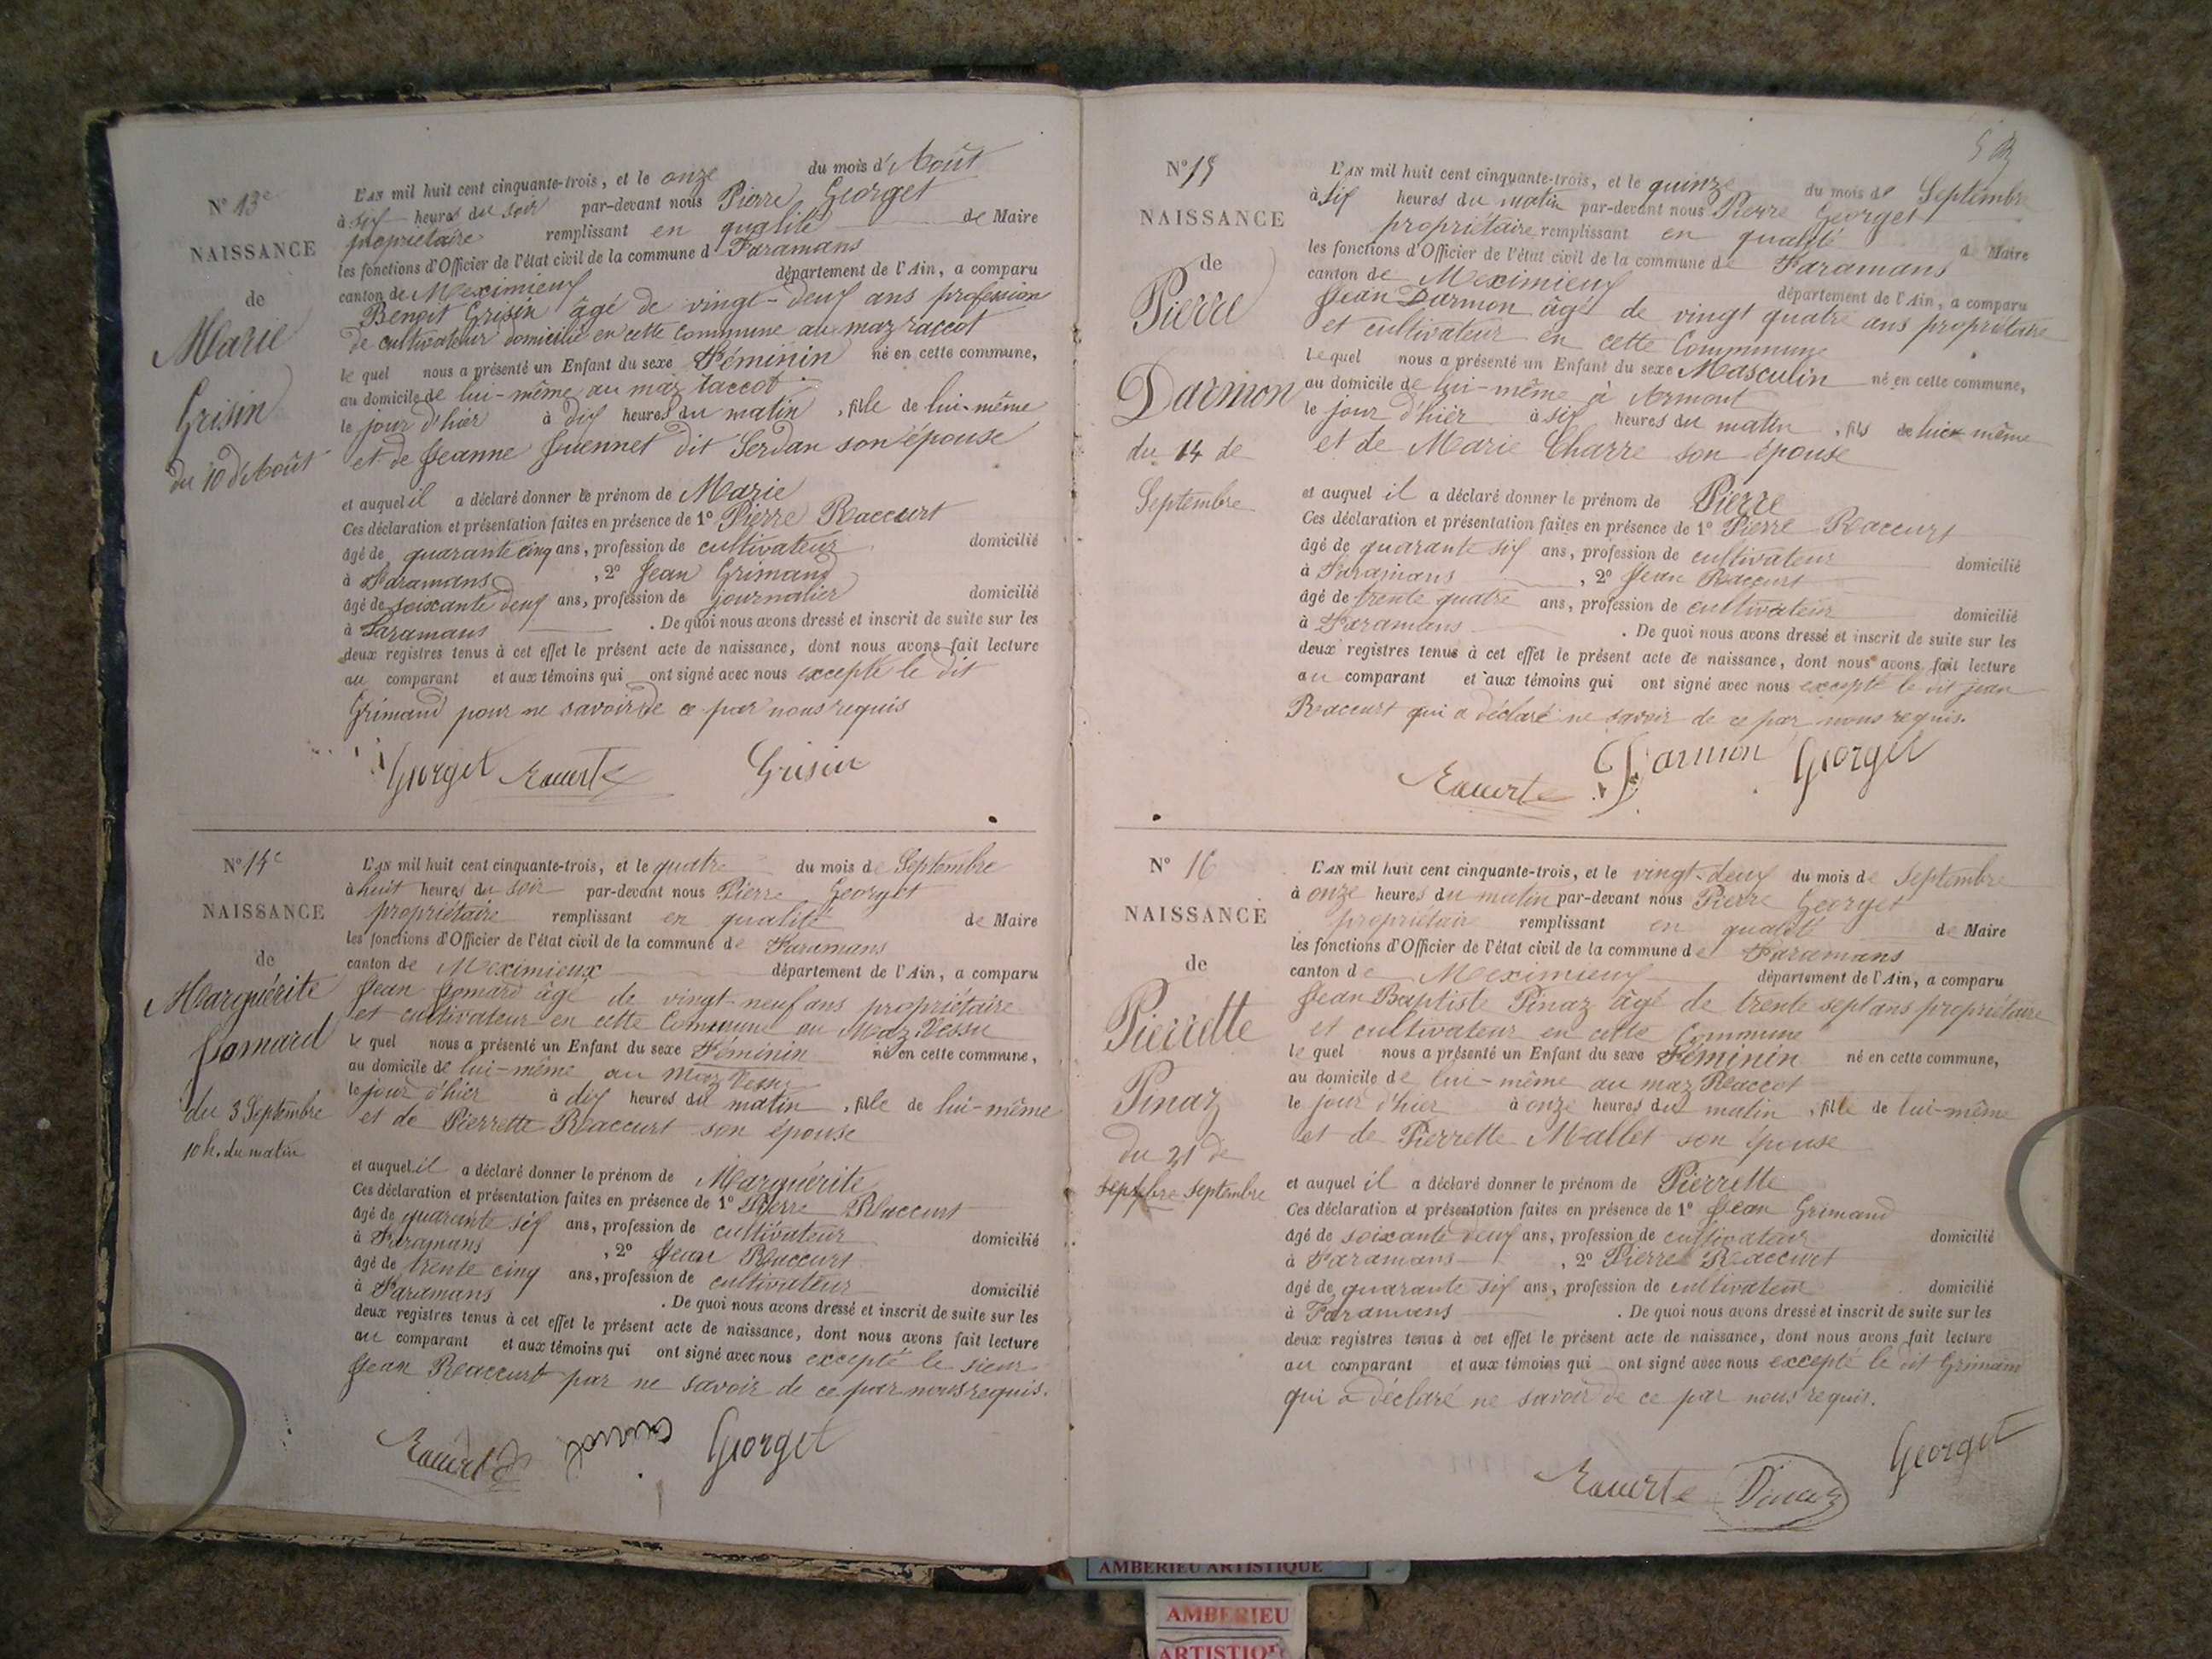 N° 13e
NAISSANCE
de
Marie
Grisin
du 10 d'Août
L'AN mil huit cent cinquante-trois, et le onze du mois d'Août
à six heures du soir par-devant nous Pierre Georget
propriétaire remplissant en qualité de Maire
les fonctions d'Officier de l'état civil de la commune d Faramans
canton de Meximieux département de l'Ain, a comparu
Benoit Grisin âgé de vingt-deux ans profession
de cultivateur domicilié en cette commune au maz raccot
le quel nous a présenté un Enfant du sexe Féminin né en cette commune,
au domicile de lui-même au maz raccot
le jour d'hier à dix heures du matin, fille de lui-même
et de Jeanne Juennet dit Serdan son épouse
et auquel il a déclaré donner le prénom de Marie
Ces déclaration et présentation faites en présence de 1° Pierre Raccurt
âgé de quarante cinq ans, profession de cultivateur domicilié
à Faramans, 2° Jean Grimand
âgé de soixante deux ans, profession de journalier domicilié
à Faramans. De quoi nous avons dressé et inscrit de suite sur les
deux registres tenus à cet effet le présent acte de naissance, dont nous avons fait lecture
au comparant et aux témoins qui ont signé avec nous excepté le dit
Grimand pour ne savoir de ce par nous requis
Georget Raccurt Grisin
N° 14e
NAISSANCE
de
Marguérite
Jomard
du 3 Septembre
10 h. du matin
L'AN mil huit cent cinquante-trois, et le quatre du mois de Septembre
à huit heures du soir par-devant nous Pierre Georget
propriétaire remplissant en qualité de Maire
les fonctions d'Officier de l'état civil de la commune de Faramans
canton de Meximieux département de l'Ain, a comparu
Jean Jomard âgé de vingt-neuf ans propriétaire
et cultivateur en cette Commune au Maz Vessu
le quel nous a présenté un Enfant du sexe Féminin né en cette commune,
au domicile de lui-même au maz Vessu
le jour d'hier à dix heures du matin, fille de lui-même
et de Pierrette Raccurt son épouse
et auquel il a déclaré donner le prénom de Marguérite
Ces déclaration et présentation faites en présence de 1° Pierre Raccurt
âgé de quarante six ans, profession de cultivateur domicilié
à Faramans, 2° Jean Raccurt
âgé de trente cinq ans, profession de cultivateur domicilié
à Faramans. De quoi nous avons dressé et inscrit de suite sur les
deux registres tenus à cet effet le présent acte de naissance, dont nous avons fait lecture
au comparant et aux témoins qui ont signé avec nous excepté le sieur
Jean Raccurt par ne savoir de ce par nous requis.
Raccurt Georget
N° 15
NAISSANCE
de
Pierre
Darmon
du 14 de
Septembre
L'AN mil huit cent cinquante-trois, et le quinze du mois de Septembre
à six heures du matin par-devant nous Pierre Georget
propriétaire remplissant en qualité de Maire
les fonctions d'Officier de l'état civil de la commune de Faramans
canton de Meximieux département de l'Ain, a comparu
Jean Darmon âgé de vingt quatre ans propriétaire
et cultivateur en cette Commmune
lequel nous a présenté un Enfant du sexe Masculin né en cette commune,
au domicile de lui-même à Vormont
le jour d'hier à six heures du matin, fils de lui même
et de Marie Charre son épouse
et auquel il a déclaré donner le prénom de Pierre
Ces déclaration et présentation faites en présence de 1° Pierre Raccurt
âgé de quarante six ans, profession de cultivateur domicilié
à Faramans, 2° Jean Raccurt
âgé de trente quatre ans, profession de cultivateur domicilié
à Faramans. De quoi nous avons dressé et inscrit de suite sur les
deux registres tenus à cet effet le présent acte de naissance, dont nous avons fait lecture
au comparant et aux témoins qui ont signé avec nous excepté le dit jean
Raccurt qui a déclaré ne savoir de ce par nous requis.
Raccurt Darmon Georget
N° 16
NAISSANCE
de
Pierrette
Pinaz
du 21 de
septebre septembre
L'AN mil huit cent cinquante-trois, et le vingt-deux du mois de septembre
à onze heures du matin par-devant nous Pierre Georget
propriétaire remplissant en qualité de Maire
les fonctions d'Officier de l'état civil de la commune de Faramans
canton de Meximieux département de l'Ain, a comparu
Jean Baptiste Pinaz âgé de trente sept ans propriétaire
et cultivateur en cette Commune
le quel nous a présenté un Enfant du sexe Féminin né en cette commune,
au domicile de lui-même au maz Raccot
le jour d'hier à onze heures du matin, fille de lui-même
et de Pierrette Mallet son épouse
et auquel il a déclaré donner le prénom de Pierrette
Ces déclaration et présentation faites en présence de 1° Jean Grimand
âgé de soixante deux ans, profession de cultivateur domicilié
à Faramans, 2° Pierre Raccurt
âgé de quarante six ans, profession de cultivateur domicilié
à Faramans. De quoi nous avons dressé et inscrit de suite sur les
deux registres tenus à cet effet le présent acte de naissance, dont nous avons fait lecture
au comparant et aux témoins qui ont signé avec nous excepté le dit Grimand
qui a déclaré ne savoir de ce par nous requis.
Raccurt Pinaz Georget
AMBERIEU ARTISTIQUE
AMBERIEU
ARTISTIQUE